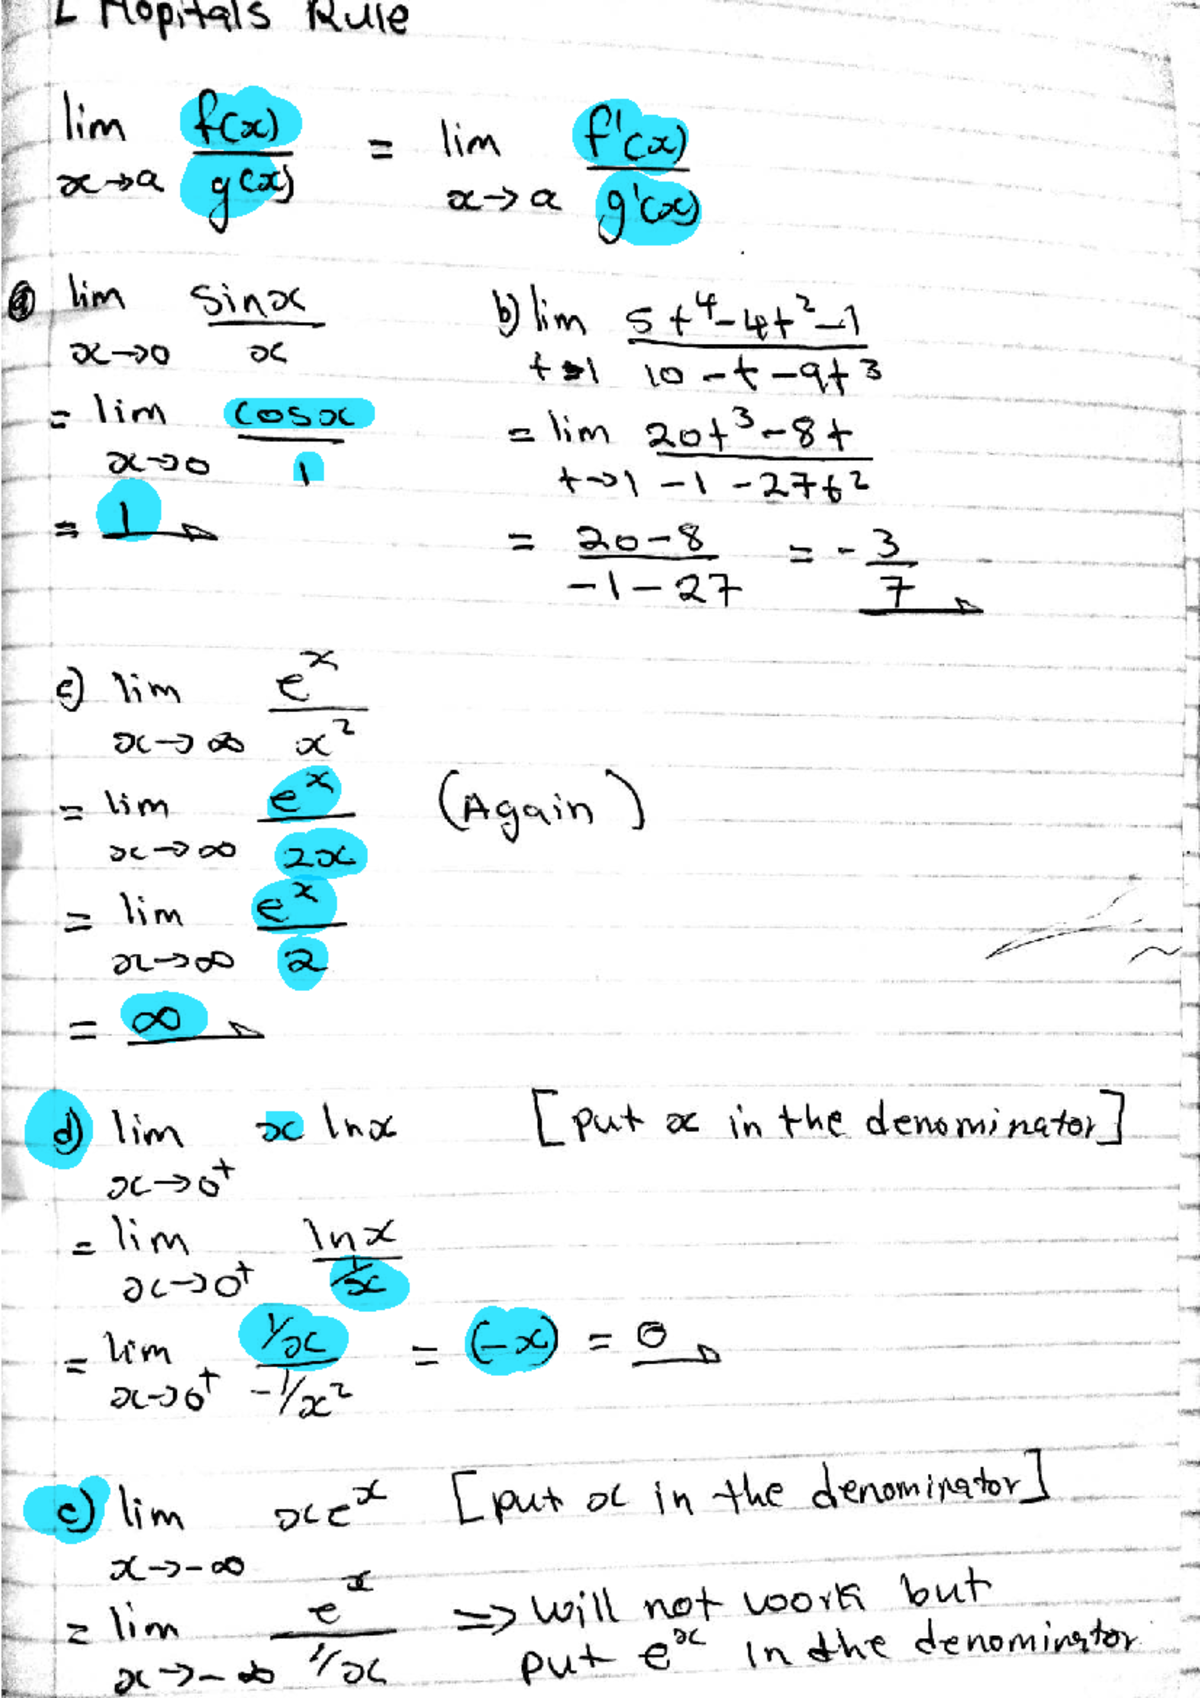 L'Hopitals Rule
lim x→a f(x)/g(x) = lim x→a f'(x)/g'(x)
a) lim x→0 sinx/x
= lim x→0 cosx/1
= 1
b) lim t→1 5t⁴-4t²-1/10-t-9t³
= lim t→1 20t³-8t/-1-27t²
= 20-8/-1-27 = -3/7
c) lim x→∞ eˣ/x²
= lim x→∞ eˣ/2x (Again)
= lim x→∞ eˣ/2
= ∞
d) lim x→0⁺ x lnx [put x in the denominator]
= lim x→0⁺ lnx/1/x
= lim x→0⁺ 1/x/-1/x² = (-x) = 0
e) lim x→-∞ xeˣ [put x in the denominator]
= lim x→-∞ eˣ/1/x => will not work but
put eˣ in the denominator